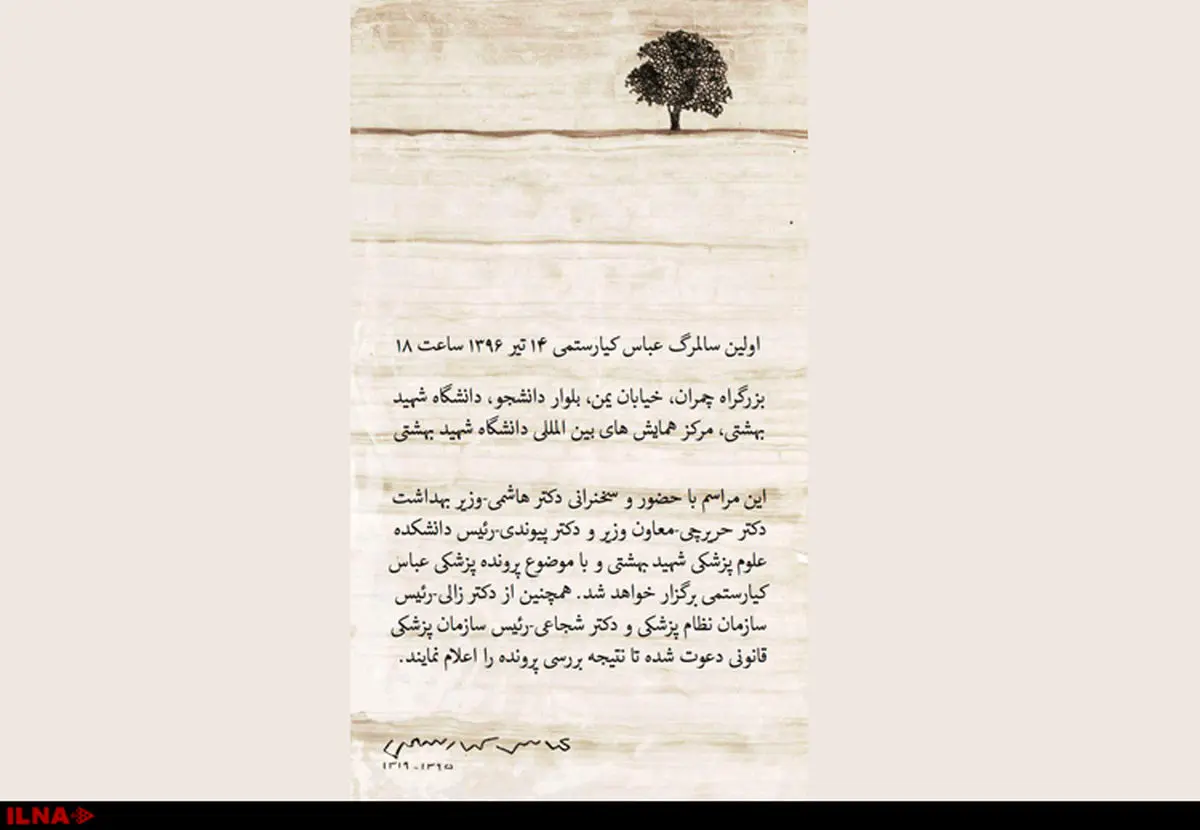 اولین سالمرگ عباس کیارستمی ۱۴ تیر ۱۳۹۶ ساعت ۱۸
بزرگراه چمران، خیابان یمن، بلوار دانشجو، دانشگاه شهید
بهشتی، مرکز همایش های بین المللی دانشگاه شهید بهشتی
این مراسم با حضور و سخنرانی دکتر هاشمی-وزیر بهداشت
دکتر حریرچی-معاون وزیر و دکتر پیوندی-رئیس دانشکده
علوم پزشکی شهید بهشتی و با موضوع پرونده پزشکی عباس
کیارستمی برگزار خواهد شد. همچنین از دکتر زالی-رئیس
سازمان نظام پزشکی و دکتر شجاعی-رئیس سازمان پزشکی
قانونی دعوت شده تا نتیجه بررسی پرونده را اعلام نمایند.
عباس کیارستمی
۱۳۱۹-۱۳۹۵
ILNA